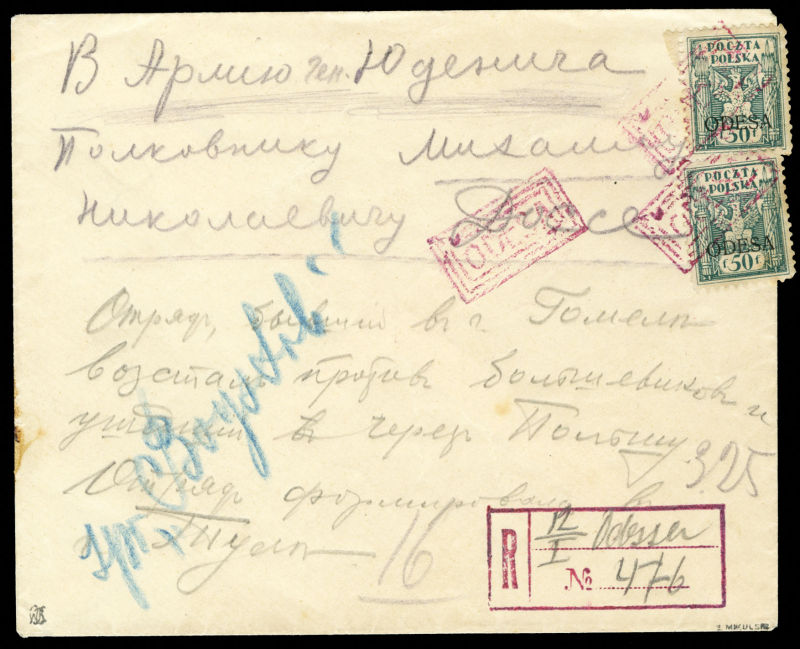 В Армию ген. Юденича
Полковнику Михаилу
Николаевичу
Отряд, бывший в г. Гомель
возсталъ противъ большевиковъ и
в через Польшу
Отряд формировался в
325
16
POCZTA
POLSKA
ODESA
50 F
POCZTA
POLSKA
ODESA
F 50 F
ODESA
R 12/I Odessa
№ 476
Z. MIKULSKI